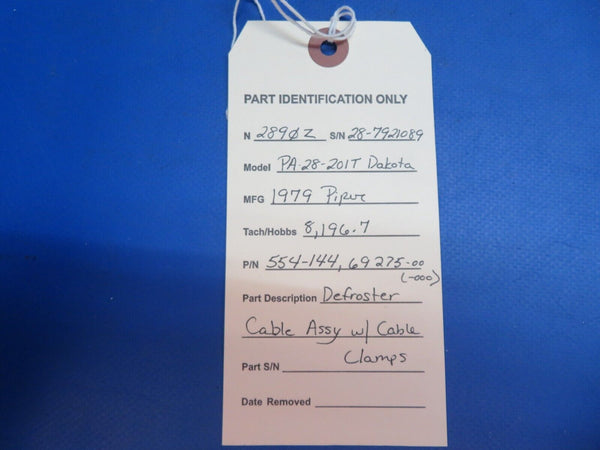 PART IDENTIFICATION ONLY
N 289ØZ S/N 28-7921089
Model PA-28-201T Dakota
MFG 1979 Piper
Tach/Hobbs 8,196.7
P/N 554-144, 69275-00
(-000)
Part Description Defroster
Cable Assy w/ Cable
Clamps
Part S/N
Date Removed